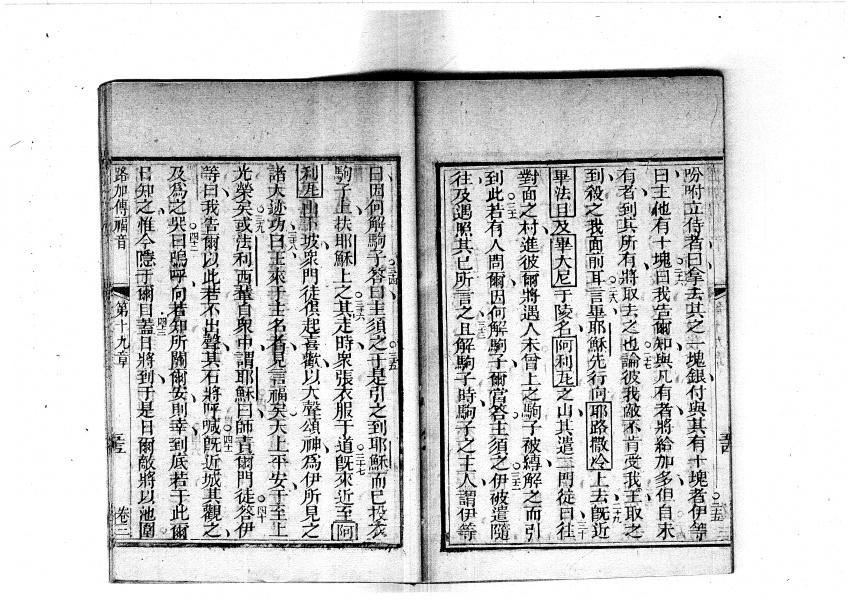 吩咐立侍者曰拿去其之一塊銀付與其有十塊者伊等
曰主他有十塊曰我告爾知與凡有者將給加多但自未
有者到其所有將取去之也論彼我敵不肯受我王取之
到殺之我面前耳言畢耶穌先行向耶路撒冷上去旣近
畢法且及畢大尼于陵名阿利瓦之山其遣二門徒曰往
對面之村進彼爾將遇人未曾上之駒子被縛解之而引
到此若有人問爾因何解駒子爾當答主須之伊被遣隨
往及遇照其已所言之且解駒子時駒子之主人謂伊等
曰因何解駒子答曰主須之于是引之到耶穌而已投衣
駒子上扶耶穌上之其走時衆張衣服于道旣來近至阿
利瓦山下坡衆門徒俱起喜歡以大聲頌神爲伊所見之
諸大迹功曰王來于主名者見言福矣天上平安于至上
光榮矣或法利西輩自衆中謂耶穌曰師責爾門徒答伊
等曰我告爾以此若不出聲其石將呼喊旣近城其觀之
及爲之哭曰嗚呼向若知所關爾安則幸到底若于此爾
日知之惟今隱于爾目蓋日將到于是日爾敵將以池圍
路加傳福音
第十九章
卷三